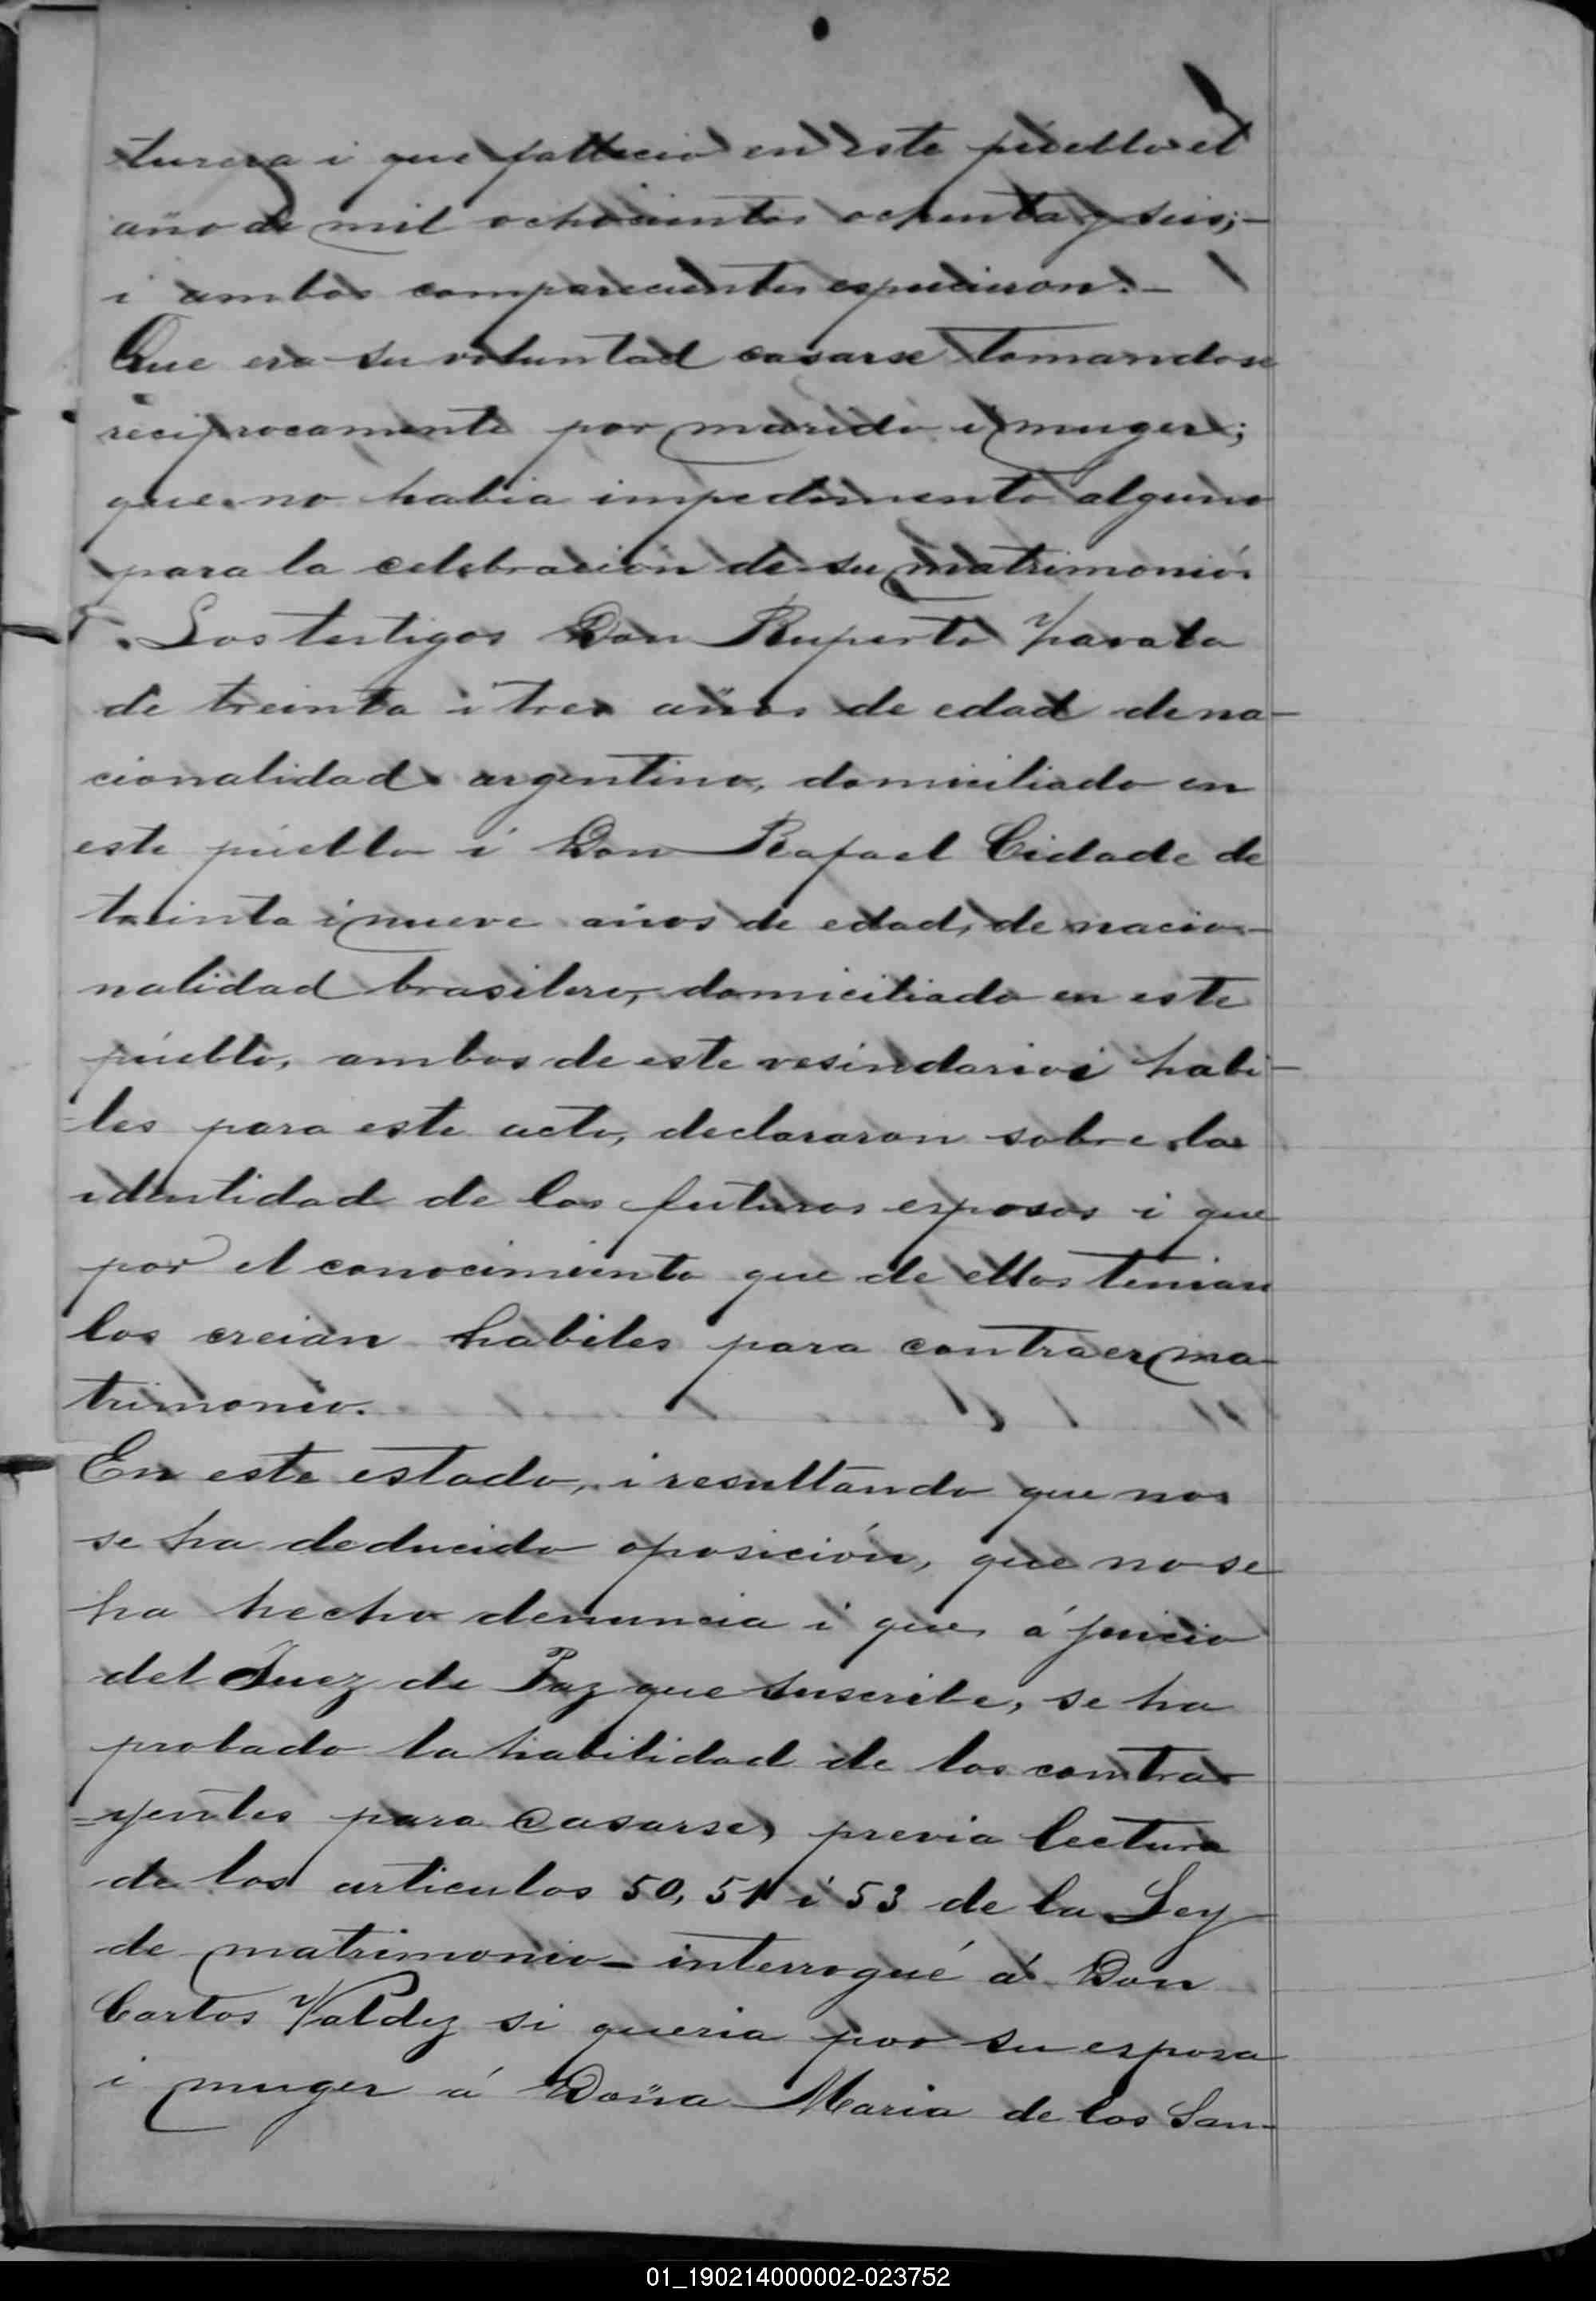 turera i que fallecio en este pueblo el
año de mil ochocientos ochenta y seis;—
i ambos comparecientes espucieron:—
Que era su voluntad casarse tomandose
reciprocamente por marido i muger;
que no habia impedimento alguno
para la celebracion de su matrimonio.
Los testigos Don Ruperto
de treinta i tres años de edad de na-
cionalidad argentino, domiciliado en
este pueblo i Don Rafael Cidade de
treinta i nueve años de edad, de nacio-
nalidad brasilero, domiciliado en este
pueblo, ambos de este vesindario i habi-
les para este acto, declararon sobre la
identidad de los futuros esposos i que
por el conocimiento que de ellos tenian
los creian habiles para contraer ma-
trimonio.
En este estado, i resultando que no
se ha deducido oposición, que no se
ha hecho denuncia i que á juicio
del Juez de Paz que suscribe, se ha
probado la habilidad de los contra-
=yentes para casarse, previa lectura
de los articulos 50, 51 i 53 de la Ley
de matrimonio— interrogué á Don
Carlos Valdez si queria por su esposa
i muger á Doña Maria de los San-
01_190214000002-023752